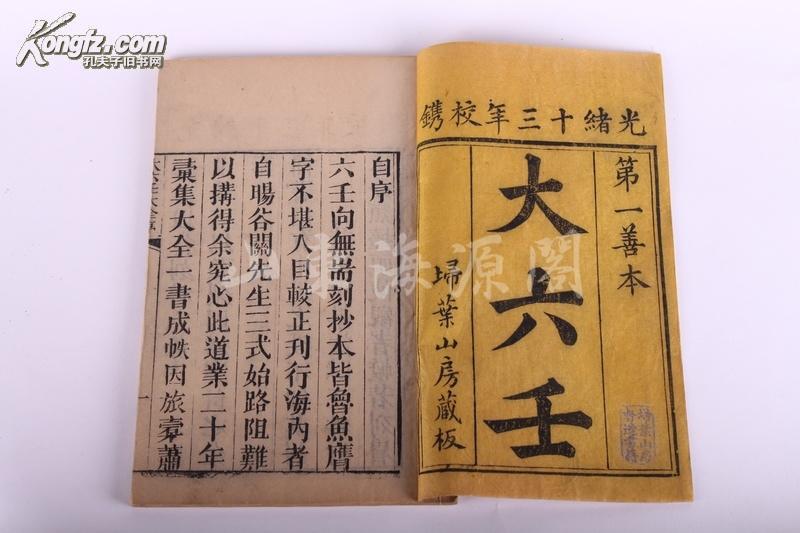 光緒十三年校鐫
第一善本
大六壬
埽葉山房藏板
自序
六壬向無耑刻抄本皆魯魚鴈
字不堪入目較正刊行海內者
自暘谷關先生三式始路阻難
以搆得余究心此道業二十年
彙集大全一書成帙因旅橐蕭
一
山東海源閣
Kongfz.com
孔夫子旧书网